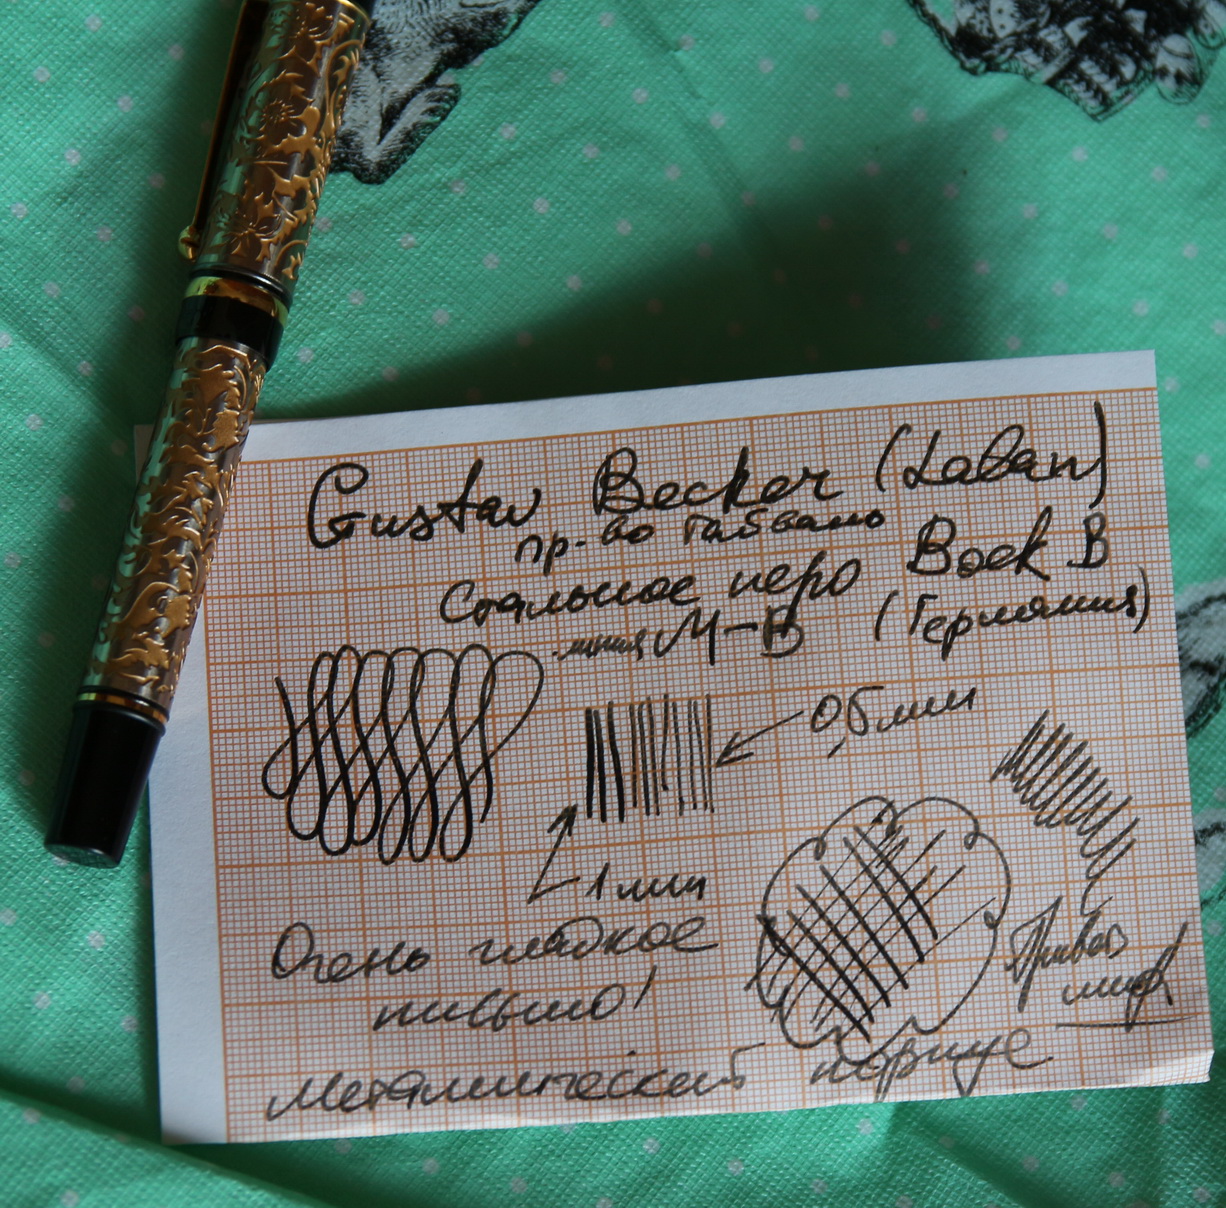 Gustav Becker (Laban)
пр-во Тайвань
Стальное перо Bock B
линия M-B (Германия)
0,5 мм
1 мм
Очень гладкое
письмо!
Привет
мир
Металлический корпус